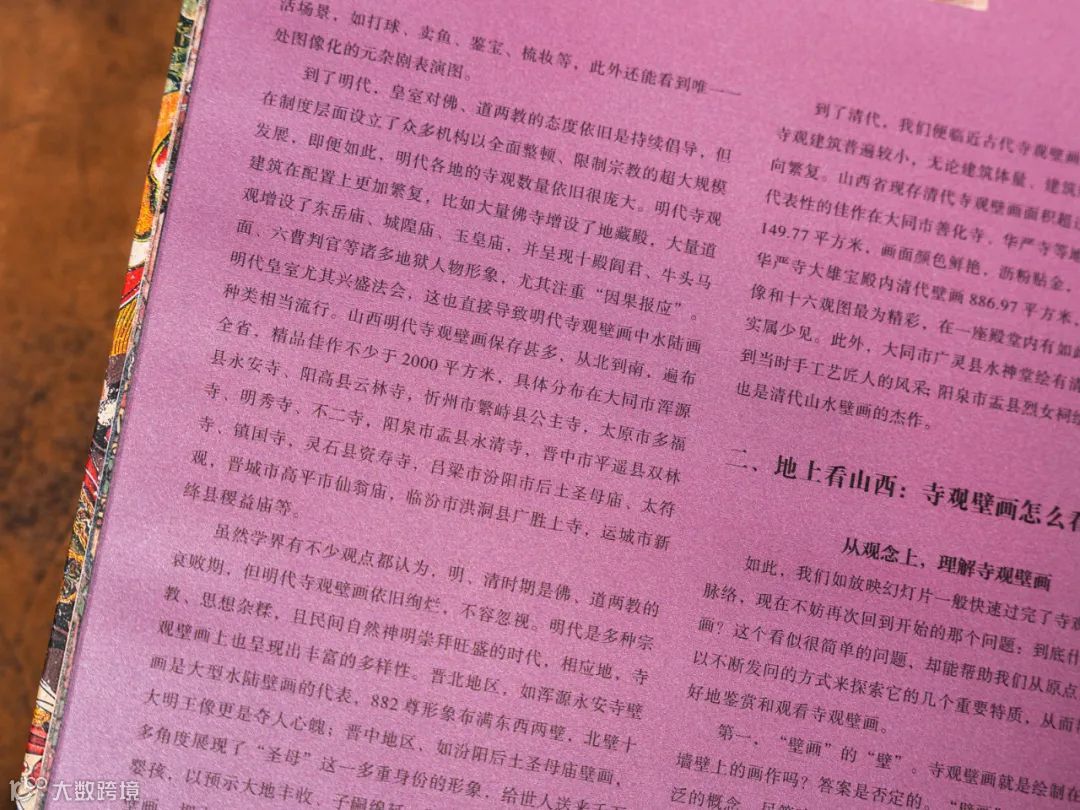 活场景，如打球、卖鱼、鉴宝、梳妆等，此外还能看到唯一
处图像化的元杂剧表演图。
到了明代，皇室对佛、道两教的态度依旧是持续倡导，但
在制度层面设立了众多机构以全面整顿、限制宗教的超大规模
发展，即便如此，明代各地的寺观数量依旧很庞大。明代寺观
建筑在配置上更加繁复，比如大量佛寺增设了地藏殿，大量道
观增设了东岳庙、城隍庙、玉皇庙，并呈现十殿阎君、牛头马
面、六曹判官等诸多地狱人物形象，尤其注重“因果报应”。
明代皇室尤其兴盛法会，这也直接导致明代寺观壁画中水陆画
种类相当流行。山西明代寺观壁画保存甚多，从北到南，遍布
全省，精品佳作不少于2000平方米，具体分布在大同市浑源
县永安寺、阳高县云林寺，忻州市繁峙县公主寺，太原市多福
寺、明秀寺、不二寺，阳泉市盂县永清寺，晋中市平遥县双林
寺、镇国寺，灵石县资寿寺，吕梁市汾阳市后土圣母庙、太符
观，晋城市高平市仙翁庙，临汾市洪洞县广胜上寺，运城市新
绛县稷益庙等。
虽然学界有不少观点都认为，明、清时期是佛、道两教的
衰败期，但明代寺观壁画依旧绚烂，不容忽视。明代是多种宗
教、思想杂糅，且民间自然神明崇拜旺盛的时代，相应地，寺
观壁画上也呈现出丰富的多样性。晋北地区，如浑源永安寺壁
画是大型水陆壁画的代表，882尊形象布满东西两壁，北壁十
大明王像更是夺人心魄；晋中地区、如汾阳后土圣母庙壁画，
多角度展现了“圣母”这一多重身份的形象，给世人送来千
婴孩，以预示大地丰收、子嗣绵
到了清代，我们便临近古代寺观壁画
寺观建筑普遍较小，无论建筑体量、建筑
向繁复。山西省现存清代寺观壁画面积超
代表性的佳作在大同市善化寺、华严寺等地
149.77平方米，画面颜色鲜艳，沥粉贴金，
华严寺大雄宝殿内清代壁画886.97平方米，
像和十六观图最为精彩，在一座殿堂内有如此
实属少见。此外，大同市广灵县水神堂绘有清
到当时手工艺匠人的风采；阳泉市盂县烈女祠绘
也是清代山水壁画的杰作。
二、地上看山西：寺观壁画怎么看
从观念上，理解寺观壁画
如此，我们如放映幻灯片一般快速过完了寺观
脉络，现在不妨再次回到开始的那个问题：到底什
画？这个看似很简单的问题、却能帮助我们从原点
以不断发问的方式来探索它的几个重要特质，从而
好地鉴赏和观看寺观壁画。
第一，“壁画”的“壁”。寺观壁画就是绘制在
墙壁上的画作吗？答案是否定的。
泛的概念
大数跨境